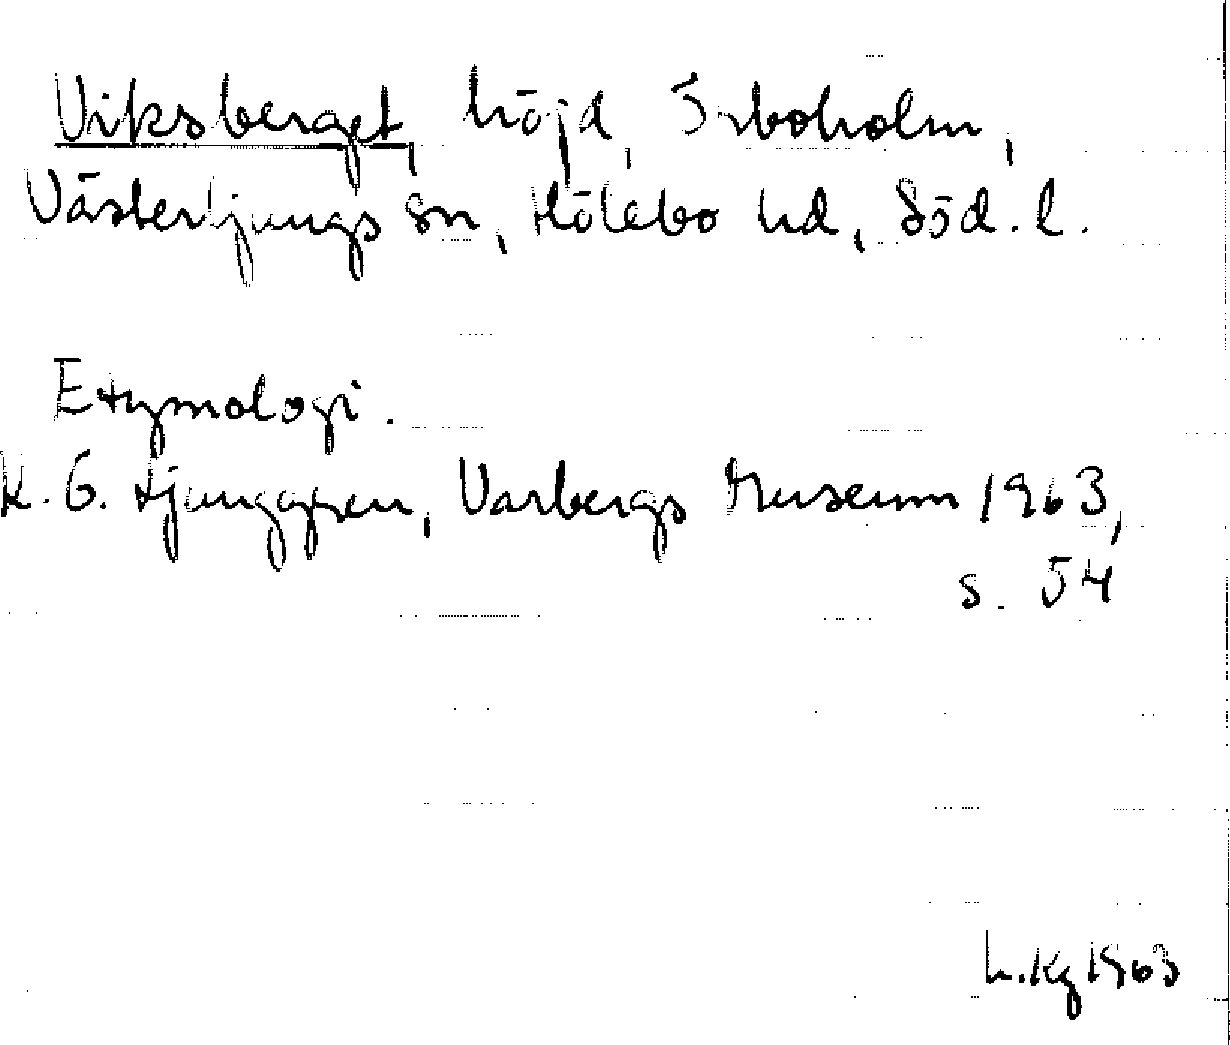 Viksberget, höjd, Åboholm,
Västerljungs sn, Hölebo hd, Söd. l.
Etymologi.
K. G. Ljunggren, Varbergs Museum 1963,
s. 54
L. Kg 1963